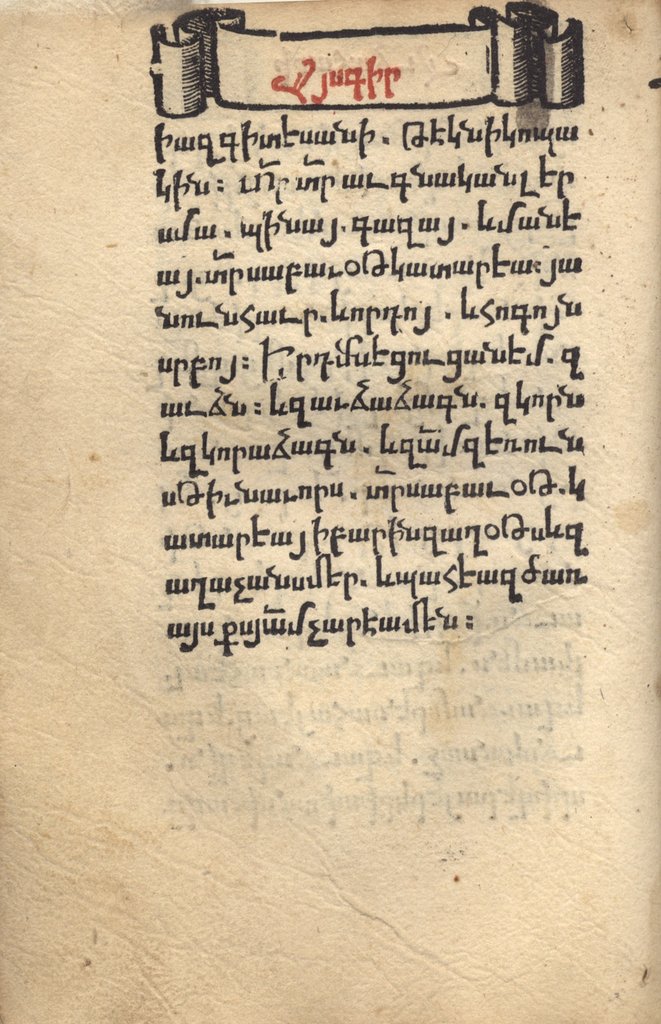 Հյսգիր
իազգիտէսանի. Թէկնիկոպա
կին: մ̅ր տ̅ր աւգնականլեր
ամա. պինայ. գազայ. եմանէ
այ. տ̅րսաբաւօԹկատարէա: յա
նունհաւր. եորդոյ. եհոգոյն
սրբոյ: Խրդմնէցուցանեմ. զ
աւձն: եզաւձաձագն. զկորն
եզկորաձագն. եզա̅մզեռուն
սԹիւնաւորս. տ̅րսաբաւօԹ. կ
ատարէայիբարինզաղօԹսեզ
աղաչանսմեր. եպահէազծառ
այս քոյա̅մչարէամէն: